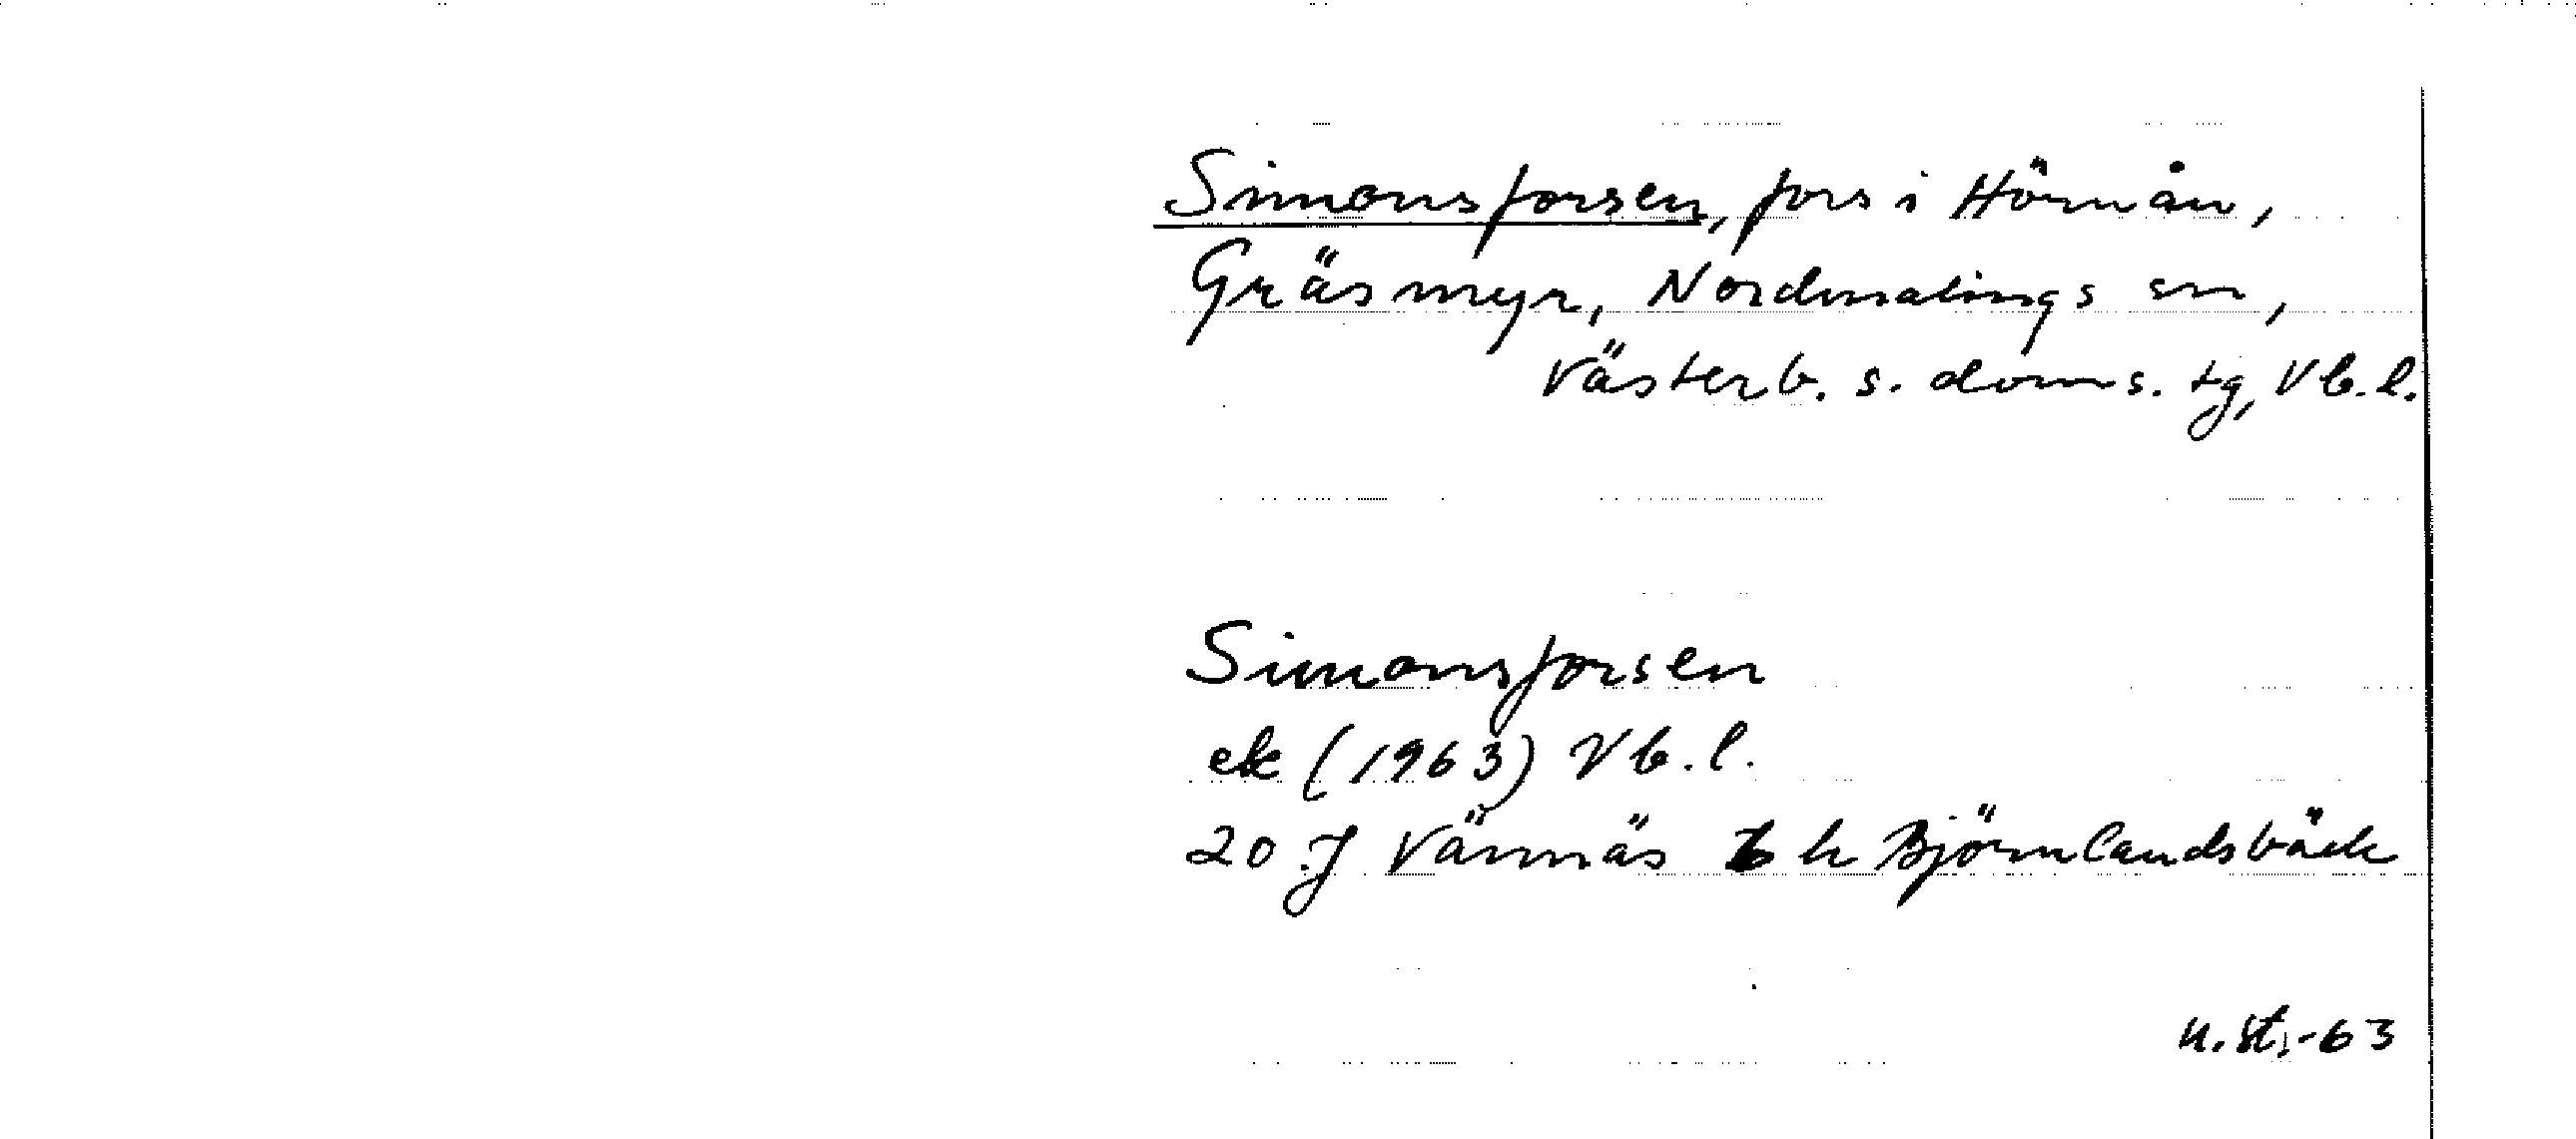 Simonsforsen, fors i Hörnån,
Gräsmyr, Nordmalings sn,
Västerb. s. doms. tg, Vb. l.
Simonsforsen
ek (1963) Vb. l.
20 J Vännäs 6 h Björnlandsbäck
u. st. -63